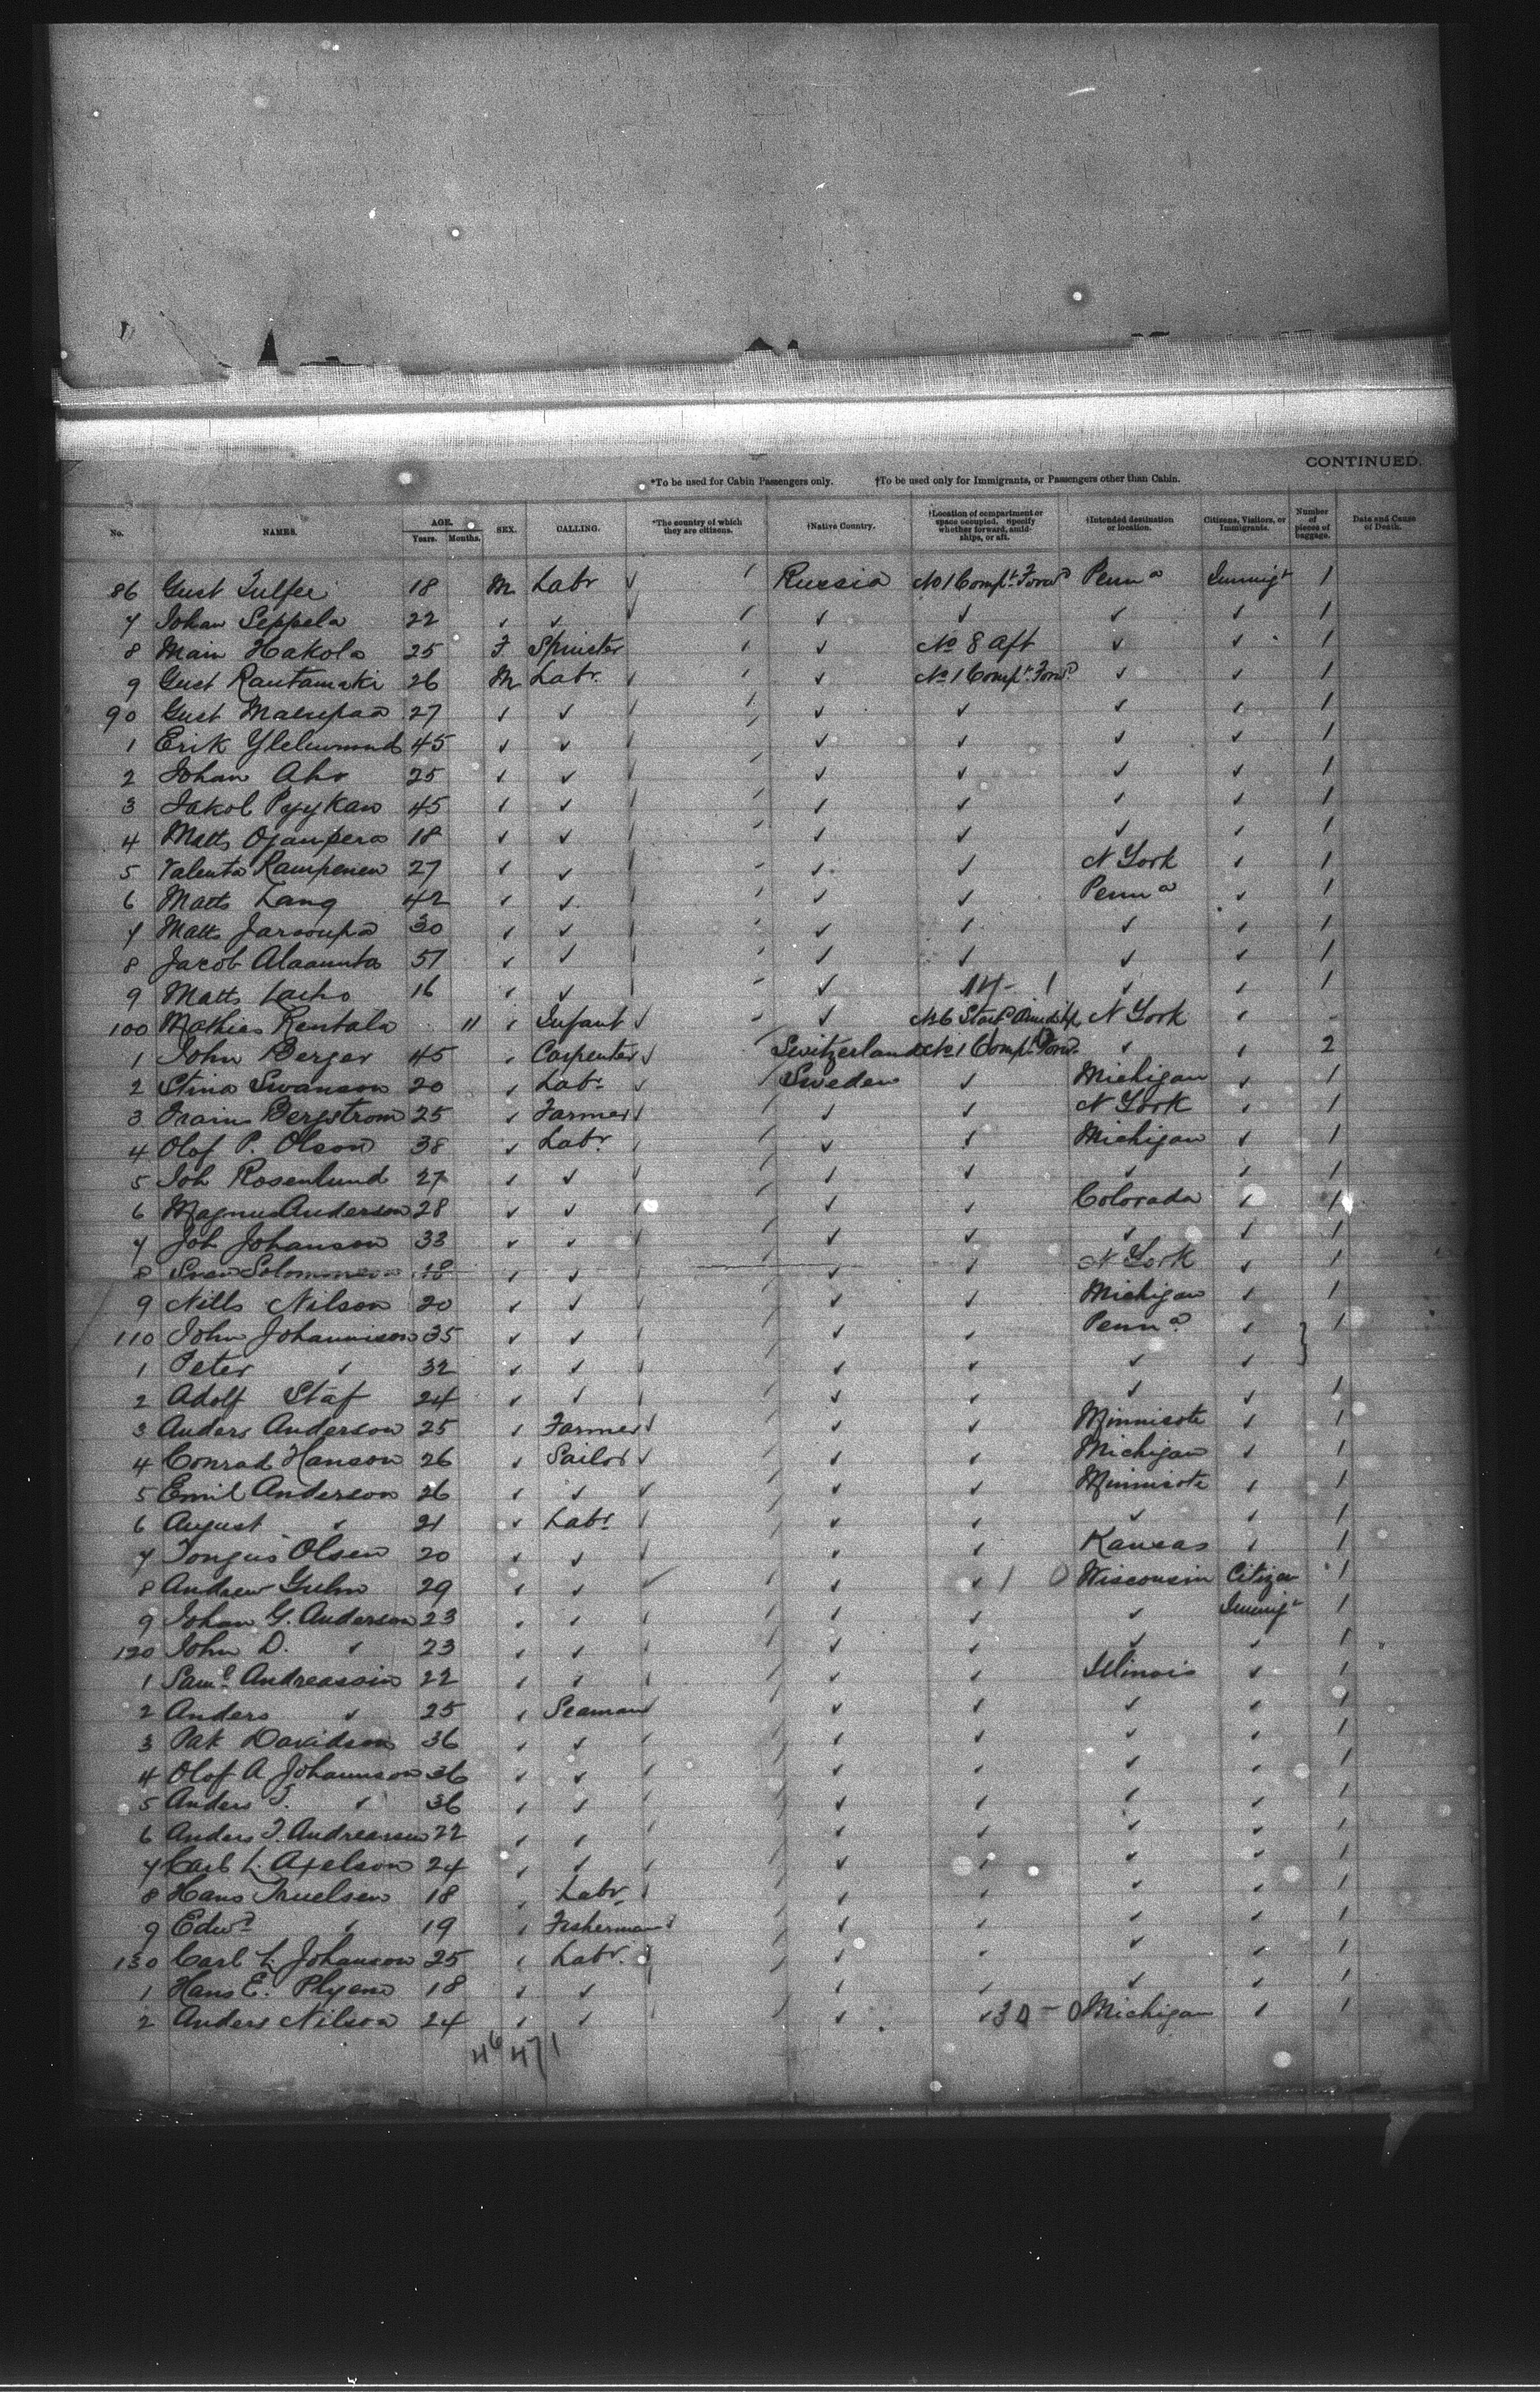 CONTINUED.
*To be used for Cabin Passengers only. †To be used only for Immigrants, or Passengers other than Cabin.
No. NAMES. AGE. Years. Months. SEX. CALLING. *The country of which they are citizens. †Native Country. †Location of compartment or space occupied. Specify whether forward, amidships, or aft. †Intended destination or location. Citizens, Visitors, or Immigrants. Number of pieces of baggage. Date and Cause of Death.
86 Gust 18 M Labr ✓ Russia No 1 Compt. Forwd Penna Immigt 1
7 Johan Seppela 22 ✓ ✓ ✓ ✓ ✓ ✓ 1
8 Main Hakola 25 F Spinster ✓ No 8 Aft ✓ ✓ 1
9 Gust Rautamaki 26 M Labr. ✓ No 1 Compt. Forwd ✓ ✓ 1
90 Gust 27 ✓ ✓ ✓ ✓ ✓ ✓ 1
1 Erik 45 ✓ ✓ ✓ ✓ ✓ ✓ 1
2 Johan Aho 25 ✓ ✓ ✓ ✓ ✓ ✓ 1
3 Jakob Pyykan 45 ✓ ✓ ✓ ✓ ✓ ✓ 1
4 Matts Ojanpera 18 ✓ ✓ ✓ ✓ ✓ ✓ 1
5 Valenta Rampenen 27 ✓ ✓ ✓ ✓ N York ✓ 1
6 Matts Lang 42 ✓ ✓ ✓ ✓ Penna ✓ 1
7 Matts 30 ✓ ✓ ✓ ✓ ✓ ✓ 1
8 Jacob 51 ✓ ✓ ✓ ✓ ✓ ✓ 1
9 Matts Laiho 16 ✓ ✓ ✓ 14 - 1 ✓ ✓ 1
100 Mathias Rentala 11 ✓ Infant ✓ ✓ No 6 N York ✓ -
1 John Berger 45 ✓ Carpenter ✓ Switzerland No 1 Compt. Forwd. ✓ ✓ 2
2 Stina Swanson 20 ✓ Labr ✓ Sweden ✓ Michigan ✓ 1
3 Bergstrom 25 ✓ Farmer ✓ ✓ N York ✓ 1
4 Olof P. Olson 38 ✓ Labr. ✓ ✓ Michigan ✓ 1
5 Joh Rosenlund 27 ✓ ✓ ✓ ✓ ✓ ✓ 1
6 Magnus Anderson 28 ✓ ✓ ✓ ✓ Colorada ✓ 1
7 Joh Johanson 33 ✓ ✓ ✓ ✓ ✓ ✓ 1
8 Sven 18 ✓ ✓ ✓ ✓ N York ✓ 1
9 Nills Nilson 20 ✓ ✓ ✓ ✓ Michigan ✓ 1
110 John Johannison 35 ✓ ✓ ✓ ✓ Penna. ✓ } 1
1 Peter ✓ 32 ✓ ✓ ✓ ✓ ✓ ✓
2 Adolf Staf 24 ✓ ✓ ✓ ✓ ✓ ✓ 1
3 Anders Anderson 25 ✓ Farmer ✓ ✓ Minnisota ✓ 1
4 Conrad Hanson 26 ✓ Sailor ✓ ✓ ✓ Michigan ✓ 1
5 Emil Anderson 26 ✓ ✓ ✓ ✓ ✓ Minnisota ✓ 1
6 August ✓ 21 ✓ Labr ✓ ✓ ✓ ✓ 1
7 Olsen 20 ✓ ✓ ✓ ✓ Kansas ✓ 1
8 Andrew 29 ✓ ✓ ✓ ✓ ✓ 1 0 Wisconsin Citizen 1
9 Johan G. Anderson 23 ✓ ✓ ✓ ✓ ✓ Immigt 1
120 John D. ✓ 23 ✓ ✓ ✓ ✓ ✓ ✓ 1
1 Saml Andreassin 22 ✓ ✓ ✓ ✓ Illinois ✓ 1
2 Anders ✓ 25 ✓ Seaman ✓ ✓ ✓ ✓ 1
3 Davidson 36 ✓ ✓ ✓ ✓ ✓ ✓ 1
4 Olof A Johannson 36 ✓ ✓ ✓ ✓ ✓ ✓ 1
5 Anders ✓ 36 ✓ ✓ ✓ ✓ ✓ ✓ 1
6 Anders Andreasen 22 ✓ ✓ ✓ ✓ ✓ ✓ 1
7 Carl L. Axelson 24 ✓ ✓ ✓ ✓ ✓ ✓ 1
8 Hans Truelsen 18 ✓ Labr ✓ ✓ ✓ ✓ 1
9 Edwd ✓ 19 ✓ Fisherman ✓ ✓ ✓ ✓ 1
130 Carl L Johanson 25 ✓ Labr. ✓ ✓ ✓ ✓ 1
1 Hans E. 18 ✓ ✓ ✓ ✓ ✓ ✓ 1
2 Anders Nilson 24 ✓ ✓ ✓ ✓ 30 - 0 Michigan ✓ 1
46 47/1